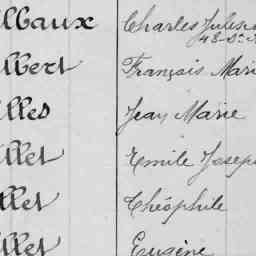 llbaux Charles Jules
48-Dt.
lbert François Mari
lles Jean Marie
llet Emile Joseph
llet Théophile
llet Eugène